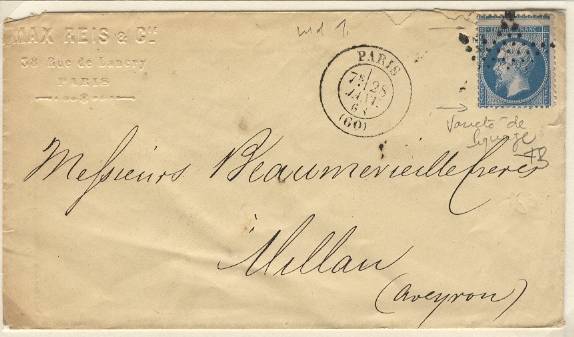 MAX REIS & Cie
38 Rue de Lancry
PARIS
PARIS
7E 28
JANV.
(60)
EMPIRE FRANC
de
TB
Messieurs Beaumevieille frères
à Millau
(Aveyron)